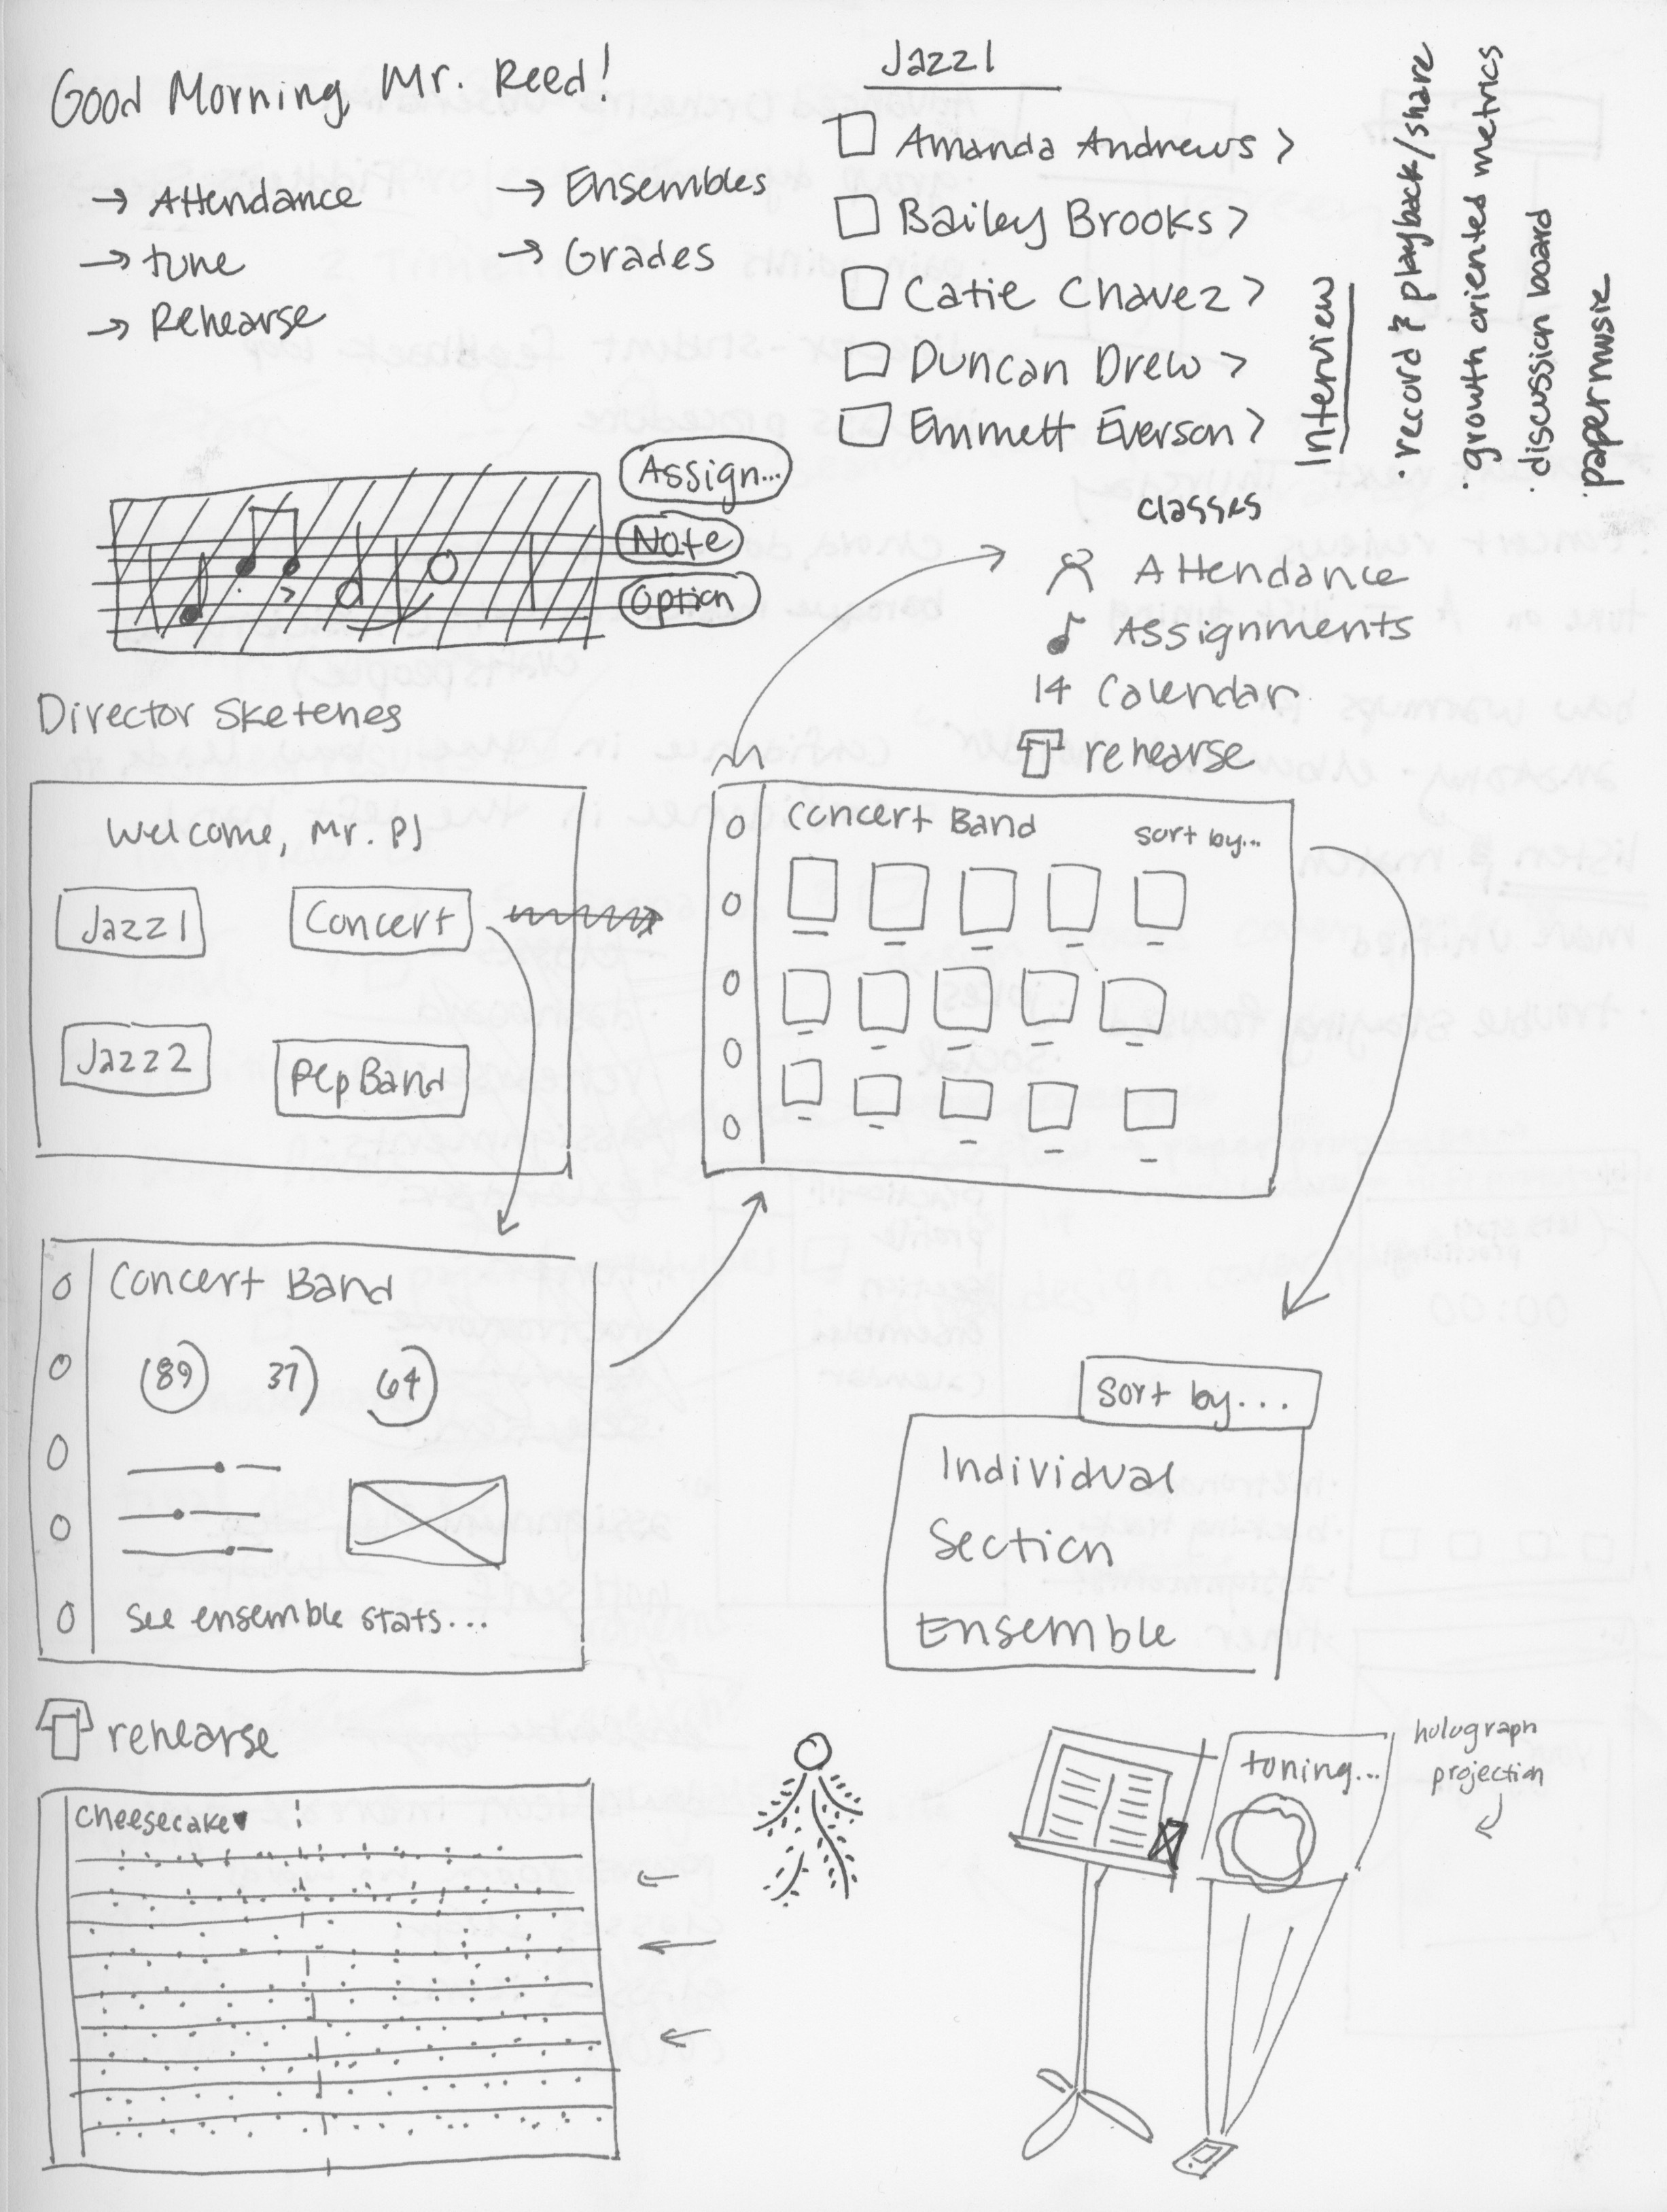 Good Morning, Mr. Reed!
→ Attendance
→ tune
→ Rehearse
→ Ensembles
→ Grades
Jazz 1
Amanda Andrews >
Bailey Brooks >
Catie Chavez >
Duncan Drew >
Emmett Everson >
Interview
· record & playback/share
· growth oriented metrics
· discussion board
· paper music
Assign...
Note
Option
classes
Attendance
Assignments
14 Calendar
rehearse
Director Sketches
Welcome, Mr. PJ
Jazz 1
Concert
Jazz 2
Pep Band
Concert Band
sort by...
Concert Band
89
37
64
See ensemble stats...
sort by...
Individual
Section
Ensemble
rehearse
Cheesecake
toning...
holograph
projection